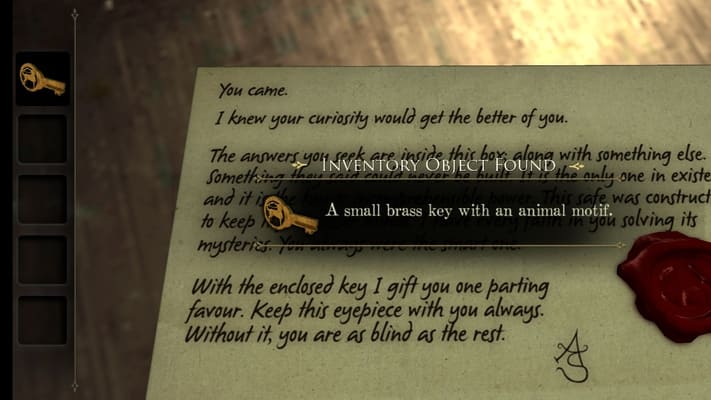 You came.
I knew your curiosity would get the better of you.
The answers you seek are inside this box; along with something else.
INVENTORY OBJECT FOUND
Something they said could never be built. It is the only one in existe
and it is the power. This safe was construct
A small brass key with an animal motif.
to keep you solving its
mysteries. You always were the smart one.
With the enclosed key I gift you one parting
favour. Keep this eyepiece with you always.
Without it, you are as blind as the rest.
AS